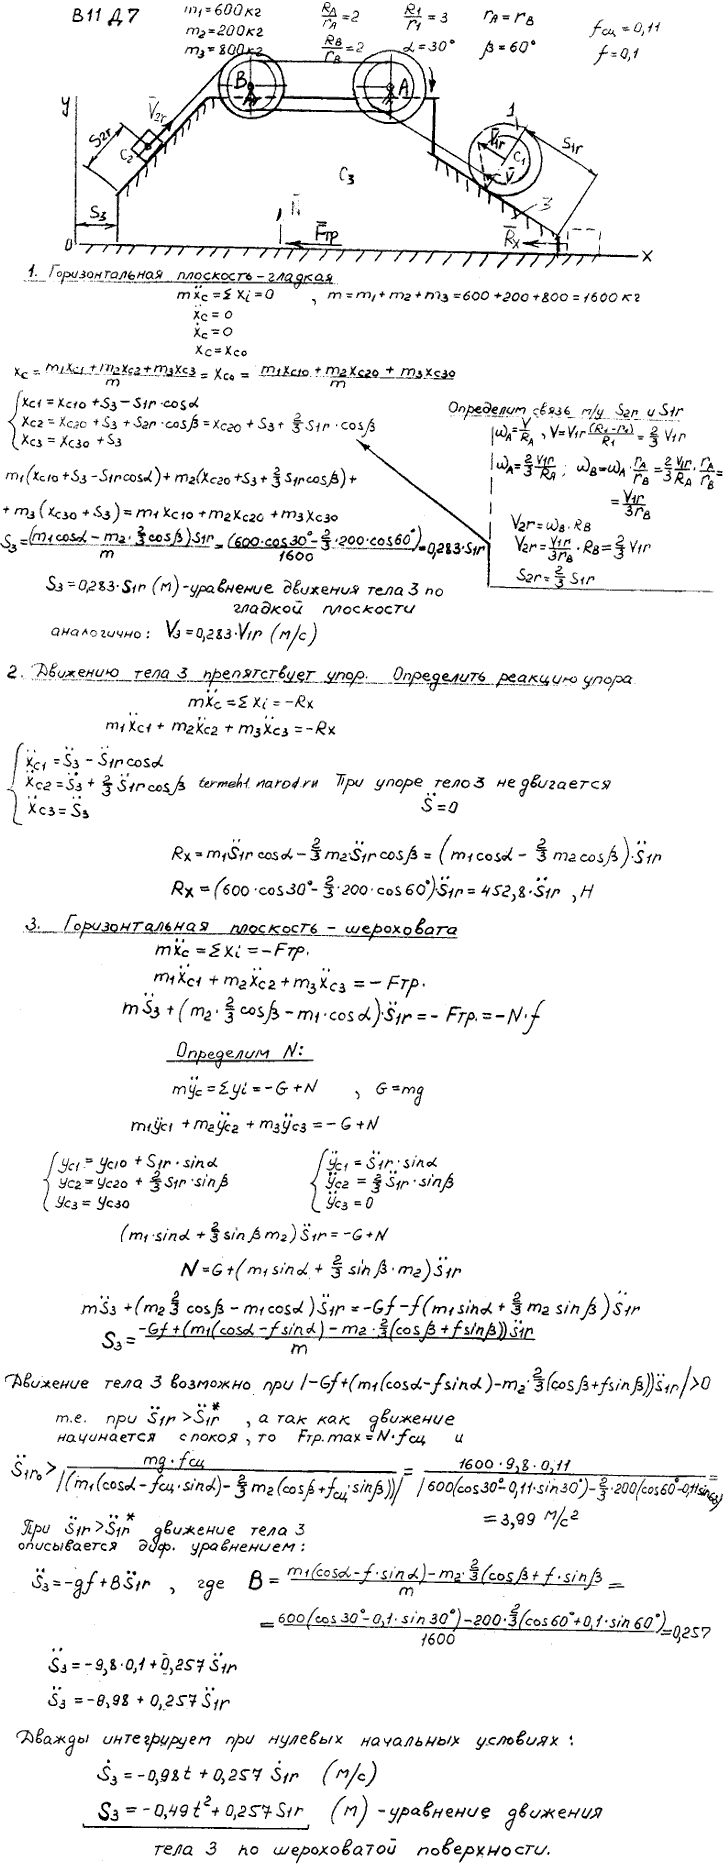 В11 Д7
m₁=600кг
m₂=200кг
m₃=800кг
R_A/r_A=2  R₁/r₁=3  r_A=r_B
R_B/r_B=2  α=30°  β=60°
f_сц=0,11
f=0,1
y
S₂r
V̄₂r
C₂
B
A
1
V̄₁r
C₁
S₁r
V̄
3
C₃
S₃
N̄
F̄тр
R̄x
0
x
1. Горизонтальная плоскость-гладкая
mẍc=Σxi=0 , m=m₁+m₂+m₃=600+200+800=1600кг
ẍc=0
ẋc=0
xc=xco
xc=(m₁xc₁+m₂xc₂+m₃xc₃)/m=xco=(m₁xc₁₀+m₂xc₂₀+m₃xc₃₀)/m
xc₁=xc₁₀+S₃-S₁r·cosα
xc₂=xc₂₀+S₃+S₂r·cosβ=xc₂₀+S₃+2/3 S₁r·cosβ
xc₃=xc₃₀+S₃
Определим связь м/у S₂r и S₁r
ω_A=V/R_A, V=V₁r(R₁-r₁)/R₁=2/3 V₁r
ω_A=2/3 V₁r/R_A; ω_B=ω_A·r_A/r_B=2/3 V₁r/R_A·r_A/r_B=
=V₁r/3r_B
V₂r=ω_B·R_B
V₂r=V₁r/3r_B·R_B=2/3 V₁r
S₂r=2/3 S₁r
m₁(xc₁₀+S₃-S₁rcosα)+m₂(xc₂₀+S₃+2/3 S₁rcosβ)+
+m₃(xc₃₀+S₃)=m₁xc₁₀+m₂xc₂₀+m₃xc₃₀
S₃=(m₁cosα-m₂·2/3cosβ)S₁r/m=(600·cos30°-2/3·200·cos60°)/1600=0,283·S₁r
S₃=0,283·S₁r (м)-уравнение движения тела 3 по
гладкой плоскости
аналогично: V₃=0,283·V₁r (м/с)
2. Движению тела 3 препятствует упор. Определить реакцию упора
mẍc=Σxi=-Rx
m₁ẍc₁+m₂ẍc₂+m₃ẍc₃=-Rx
ẍc₁=S̈₃-S̈₁rcosα
ẍc₂=S̈₃+2/3 S̈₁rcosβ termeh1.narod.ru При упоре тело 3 не двигается
ẍc₃=S̈₃
S̈=0
Rx=m₁S̈₁rcosα-2/3m₂·S̈₁rcosβ=(m₁cosα-2/3 m₂cosβ)·S̈₁r
Rx=(600·cos30°-2/3·200·cos60°)·S̈₁r=452,8·S̈₁r , Н
3. Горизонтальная плоскость-шероховата
mẍc=Σxi=-Fтр.
m₁ẍc₁+m₂ẍc₂+m₃ẍc₃=-Fтр.
mS̈₃+(m₂·2/3cosβ-m₁·cosα)·S̈₁r=-Fтр.=-N·f
Определим N:
mÿc=Σyi=-G+N , G=mg
m₁ÿc₁+m₂ÿc₂+m₃ÿc₃=-G+N
yc₁=yc₁₀+S₁r·sinα  ÿc₁=S̈₁r·sinα
yc₂=yc₂₀+2/3 S₁r·sinβ  ÿc₂=2/3 S̈₁r·sinβ
yc₃=yc₃₀  ÿc₃=0
(m₁·sinα+2/3sinβm₂)S̈₁r=-G+N
N=G+(m₁sinα+2/3 sinβ·m₂)S̈₁r
mS̈₃+(m₂2/3cosβ-m₁cosα)S̈₁r=-Gf-f(m₁sinα+2/3 m₂sinβ)S̈₁r
S̈₃=(-Gf+(m₁(cosα-fsinα)-m₂·2/3(cosβ+fsinβ))S̈₁r)/m
Движение тела 3 возможно при |-Gf+(m₁(cosα-fsinα)-m₂·2/3(cosβ+fsinβ))S̈₁r|>0
т.е. при S̈₁r>S̈₁r* , а так как движение
начинается с покоя, то Fтр.max=N·f_сц и
S̈₁r₀>mg·f_сц/|(m₁(cosα-f_сц·sinα)-2/3m₂(cosβ+f_сц·sinβ))|=1600·9,8·0,11/|600(cos30°-0,11·sin30°)-2/3·200(cos60°-0,11sin60°)|=
=3,99 м/с²
При S̈₁r>S̈₁r* движение тела 3
описывается диф. уравнением:
S̈₃=-gf+BS̈₁r , где B=(m₁(cosα-f·sinα)-m₂·2/3(cosβ+f·sinβ))/m=
=(600(cos30°-0,1·sin30°)-200·2/3(cos60°+0,1·sin60°))/1600=0,257
S̈₃=-9,8·0,1+0,257S̈₁r
S̈₃=-0,98+0,257S̈₁r
Дважды интегрируем при нулевых начальных условиях:
Ṡ₃=-0,98t+0,257 Ṡ₁r (м/с)
S₃=-0,49t²+0,257S₁r (м)-уравнение движения
тела 3 по шероховатой поверхности.